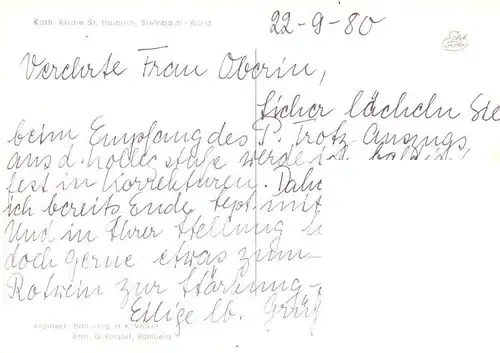 Kath. Kirche St. Heinrich, Steinbach-Wald
22-9-80
Verehrte Frau Oberin,
Sicher lächeln Sie
beim Empfang des P. Trotz Auszugs,
aus d.
fest in Korrekturen.
ich bereits Ende Sept. mit
Und in Ihrer Stellung
doch gerne etwas zum
Rotwein zur Stärkung -
Eilige lb. Grüß
Architekt: Dipl.-Ing. H. K.
G. Forster, Bamberg